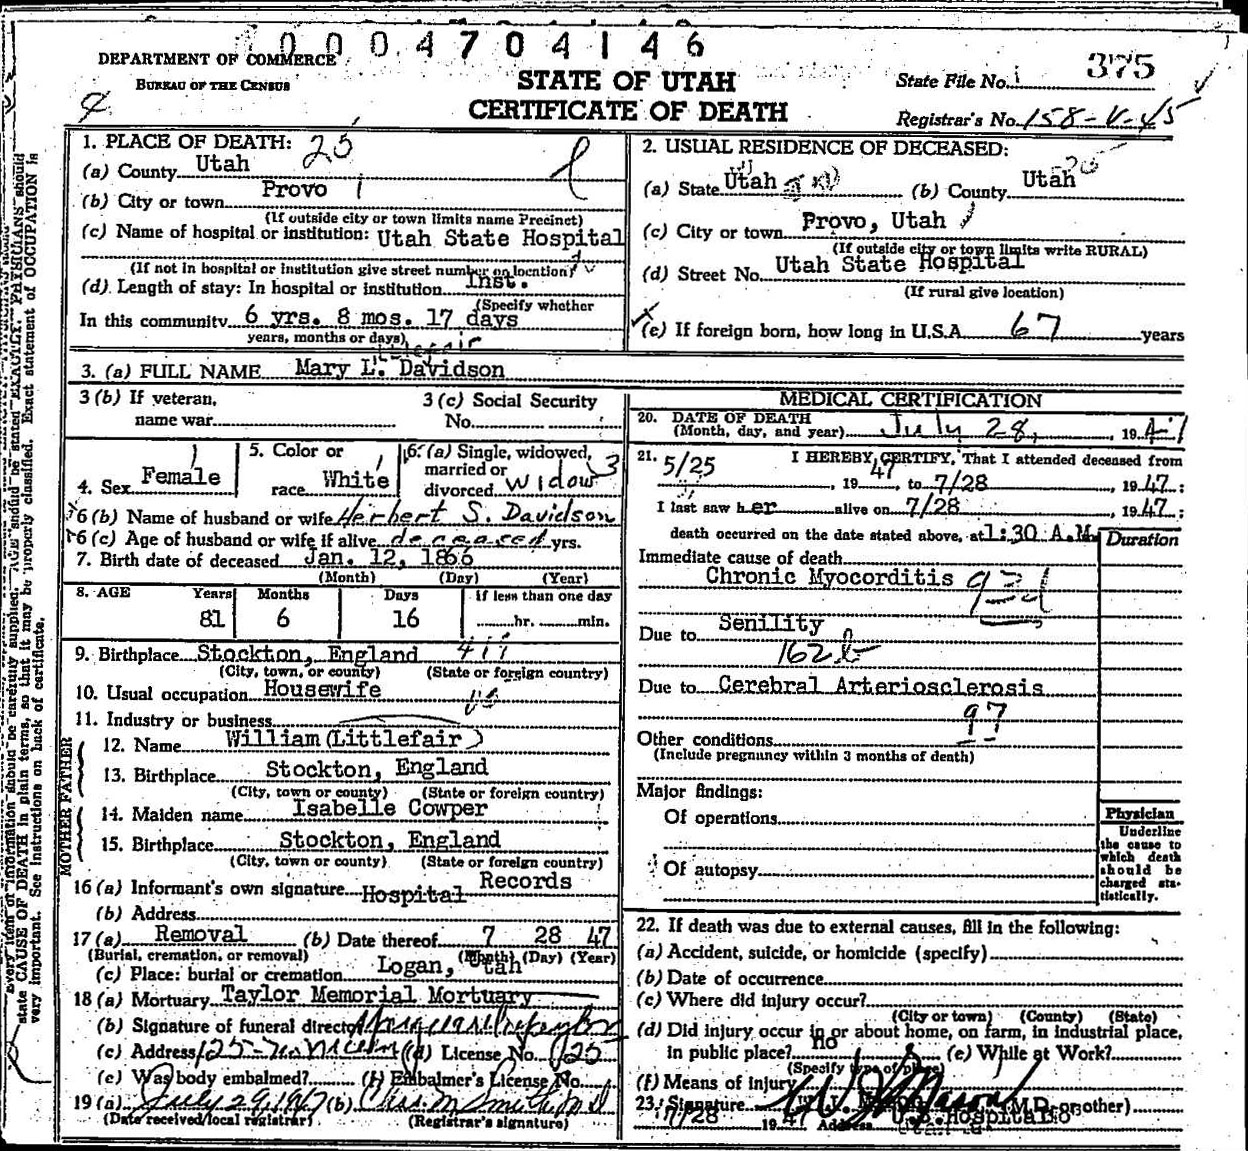 0004704146
DEPARTMENT OF COMMERCE
BUREAU OF THE CENSUS
STATE OF UTAH
CERTIFICATE OF DEATH
State File No. 375
Registrar's No. 158-V-45
1. PLACE OF DEATH: 25
(a) County Utah
(b) City or town Provo
(If outside city or town limits name Precinct)
(c) Name of hospital or institution: Utah State Hospital
(If not in hospital or institution give street number or location)
(d) Length of stay: In hospital or institution Inst.
(Specify whether
In this community 6 yrs. 8 mos. 17 days
years, months or days)
2. USUAL RESIDENCE OF DECEASED:
(a) State Utah (b) County Utah
(c) City or town Provo, Utah
(If outside city or town limits write RURAL)
(d) Street No. Utah State Hospital
(If rural give location)
(e) If foreign born, how long in U.S.A. 67 years
3. (a) FULL NAME Mary L. Davidson
3 (b) If veteran,
name war
3 (c) Social Security
No.
4. Sex Female
5. Color or
race White
6. (a) Single, widowed,
married or
divorced Widow 3
6 (b) Name of husband or wife Herbert S. Davidson
6 (c) Age of husband or wife if alive deceased yrs.
7. Birth date of deceased Jan. 12, 1866
(Month) (Day) (Year)
8. AGE Years Months Days If less than one day
81 6 16 hr. min.
9. Birthplace Stockton, England
(City, town, or county) (State or foreign country)
10. Usual occupation Housewife
11. Industry or business
FATHER
12. Name William (Littlefair)
13. Birthplace Stockton, England
(City, town or county) (State or foreign country)
MOTHER
14. Maiden name Isabelle Cowper
15. Birthplace Stockton, England
(City, town or county) (State or foreign country)
16 (a) Informant's own signature Hospital Records
(b) Address
17 (a) Removal (b) Date thereof 7 28 47
(Burial, cremation, or removal) (Month) (Day) (Year)
(c) Place: burial or cremation Logan, Utah
18 (a) Mortuary Taylor Memorial Mortuary
(b) Signature of funeral director
(c) Address (d) License No. 125
(e) Was body embalmed? (f) Embalmer's License No.
19 (a) July 29, 1947 (b) Chas. M. Smith M D
(Date received local registrar) (Registrar's signature)
MEDICAL CERTIFICATION
20. DATE OF DEATH
(Month, day, and year) July 28, 1947
21. I HEREBY CERTIFY, That I attended deceased from
5/25, 1947, to 7/28, 1947;
I last saw her alive on 7/28, 1947;
death occurred on the date stated above, at 1:30 A.M.
Duration
Immediate cause of death
Chronic Myocorditis 93d
Due to Senility
162b
Due to Cerebral Arteriosclerosis
97
Other conditions
(Include pregnancy within 3 months of death)
Major findings:
Of operations
Of autopsy
Physician
Underline
the cause to
which death
should be
charged sta-
tistically.
22. If death was due to external causes, fill in the following:
(a) Accident, suicide, or homicide (specify)
(b) Date of occurrence
(c) Where did injury occur?
(City or town) (County) (State)
(d) Did injury occur in or about home, on farm, in industrial place,
in public place? no (e) While at Work?
(Specify type of place)
(f) Means of injury
23. Signature (M.D. or other)
7/28 1947 Address Hospital